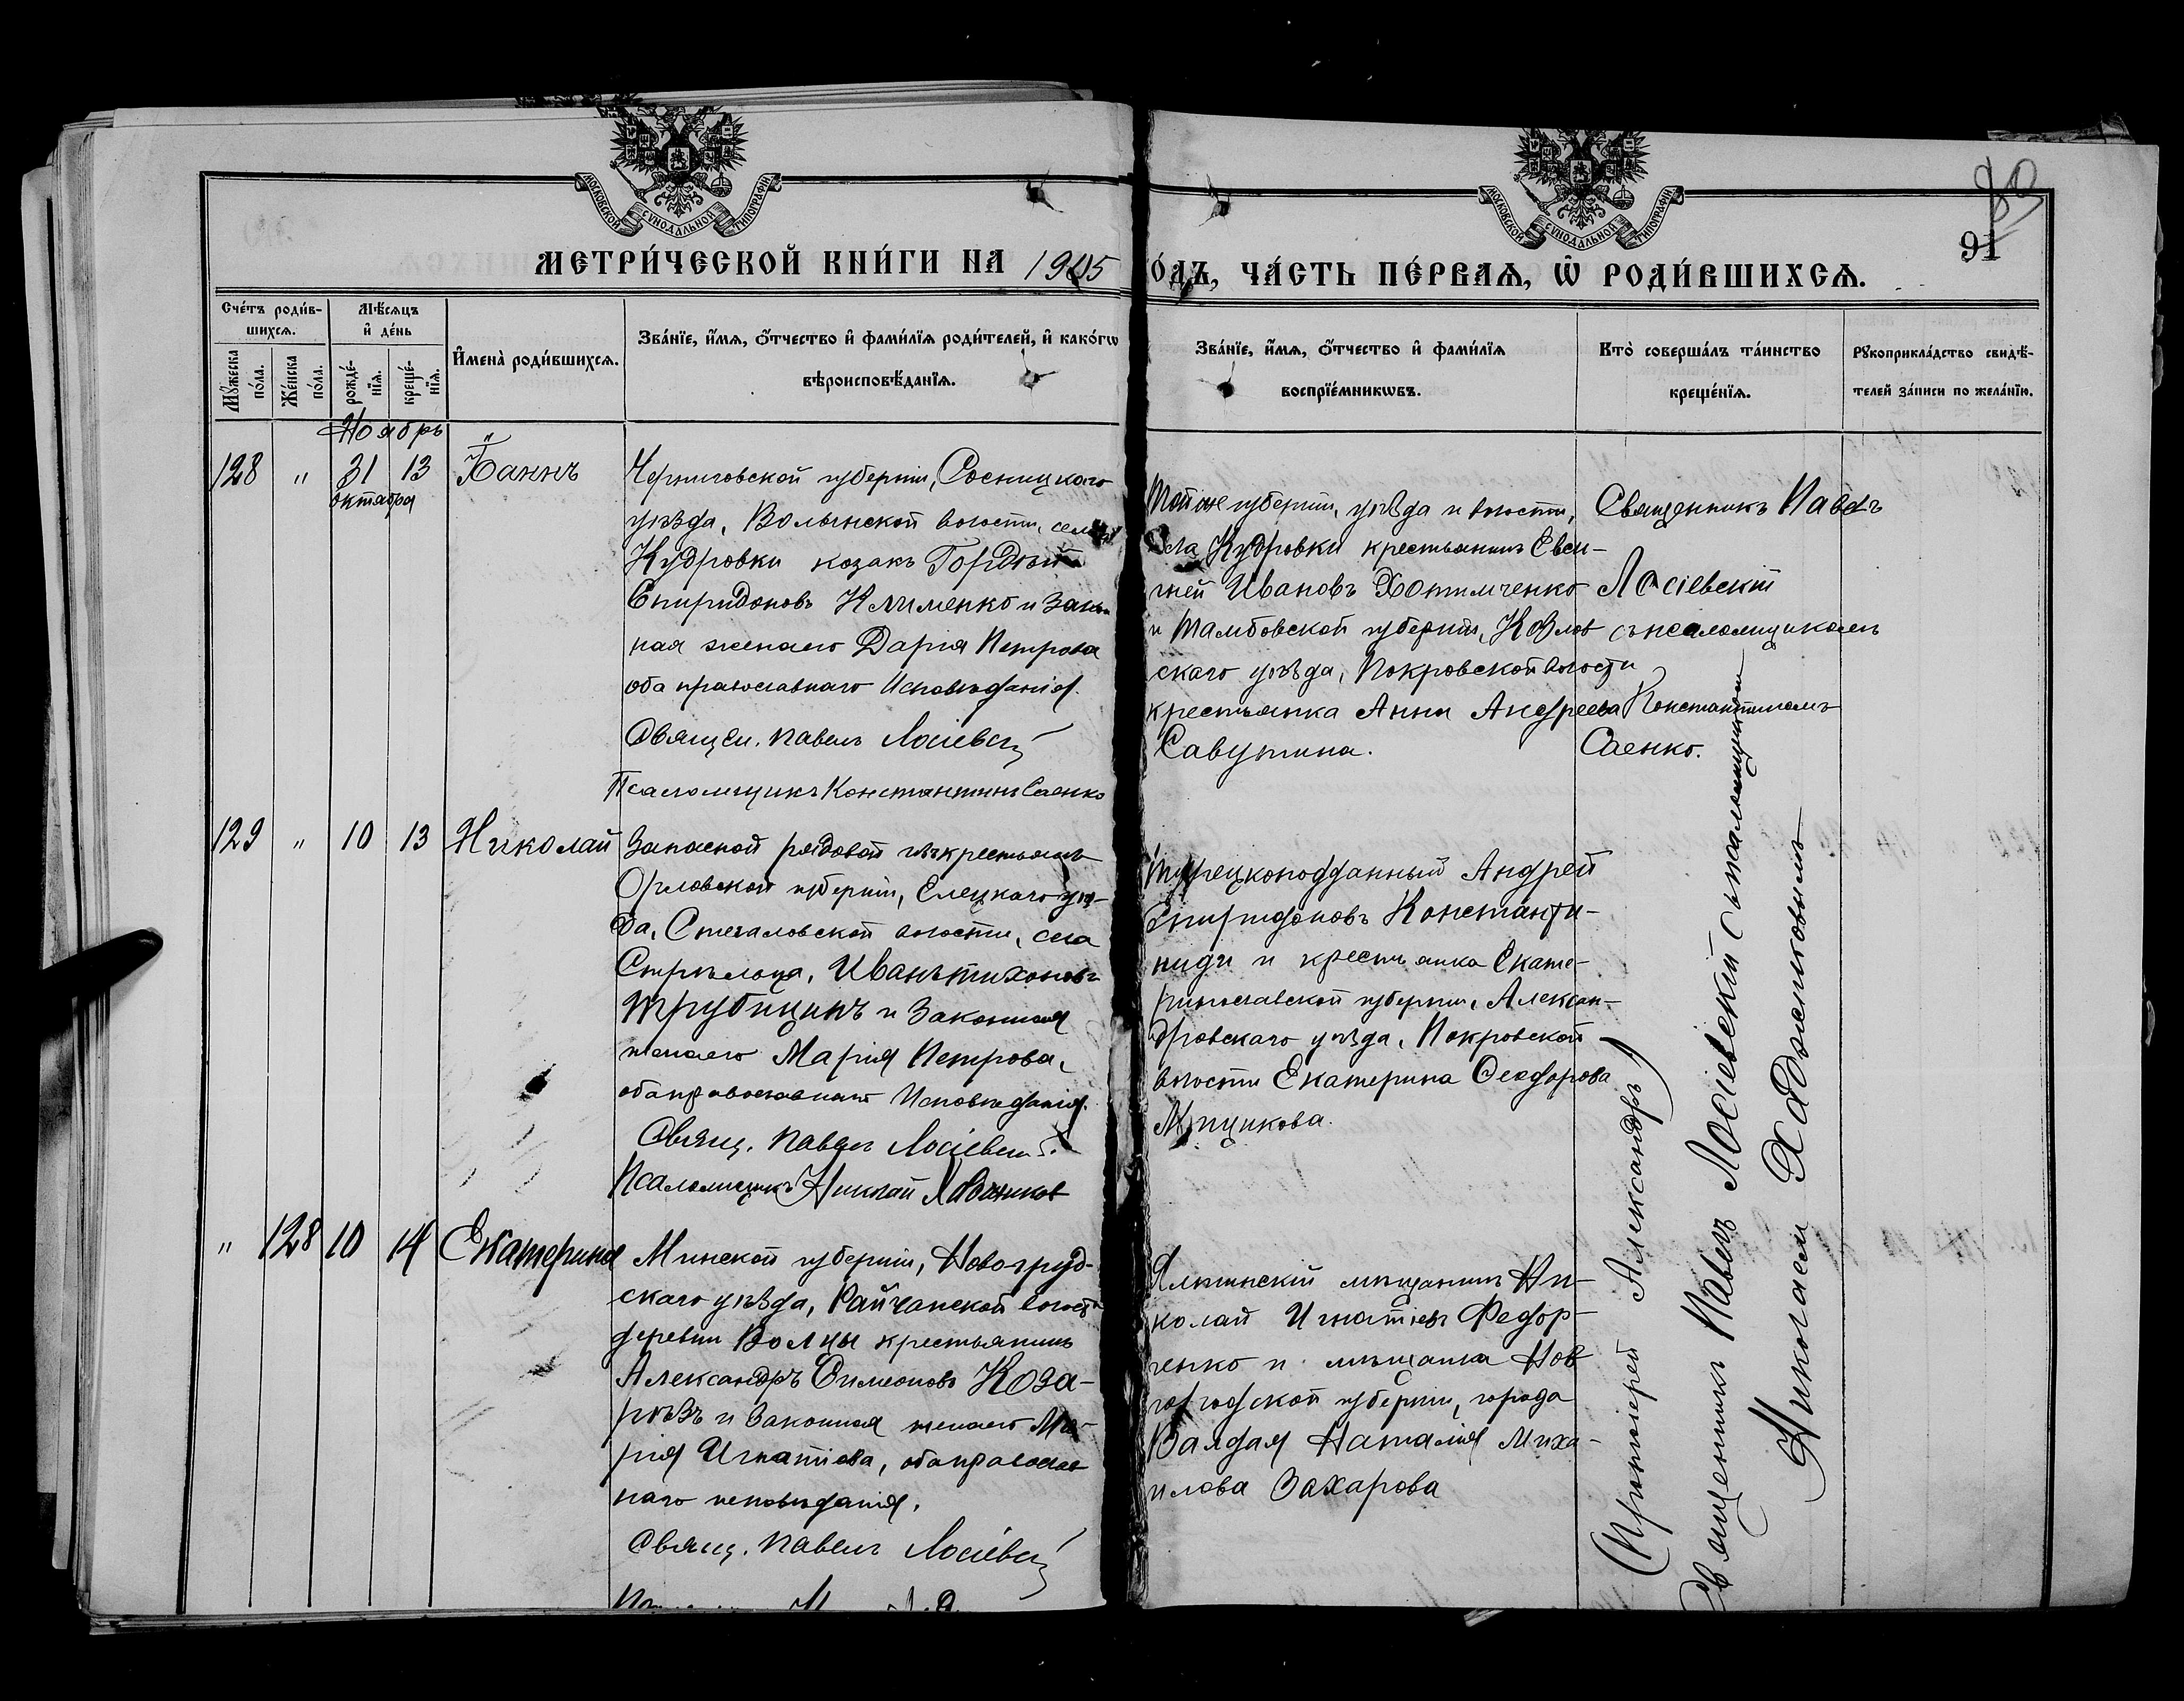 МОСКОВСКОЙ СѴНОДАЛЬНОЙ ТИПОГРАФІИ
МОСКОВСКОЙ СѴНОДАЛЬНОЙ ТИПОГРАФІИ
91
МЕТРИ́ЧЕСКОЙ КНИ́ГИ НА 1905
О́ДЪ, ЧА́СТЬ ПЕ́РВАѦ, Ѿ РОДИ́ВШИХСѦ.
Сче́тъ роди́в-
шихсѧ.
Мꙋ́жеска
по́ла.
Же́нска
по́ла.
Мѣ́сѧцъ
и҆ де́нь
рожде́-
нїѧ.
креще́-
нїѧ.
И҆мена̀ роди́вшихсѧ.
Зва́нїе, и҆́мѧ, ѻ҆́тчество и҆ фами́лїѧ роди́телей, и҆ како́гѡ
вѣроисповѣ́данїѧ.
Зва́нїе, и҆́мѧ, ѻ҆́тчество и҆ фами́лїѧ
воспрїе́мникѡвъ.
Кто̀ соверша́лъ та́инство
креще́нїѧ.
Рꙋкоприкла́дство свидѣ́-
телей за́писи по жела́нїю.
Ноябрь
128 " 31 13
октября
Іоаннъ
Черниговской губерніи, Сосницкаго
уѣзда, Волынской волости, села
Кудровки козакъ Гордій
Спиридоновъ Клименко и закон
ная жена его Дарія Петрова
оба православнаго исповѣданія.
Священ. Павелъ Лосіевскій
Псаломщикъ Константинъ Саенко
Той же губерніи, уѣзда и волости,
села Кудровки крестьянинъ Евсе-
гней Ивановъ Хотимченко
и Тамбовской губерніи, Козлов
скаго уѣзда, Покровской волости
крестьянка Анна Андреева
Савутина.
Священникъ Павелъ
Лосіевскій
съ псаломщикомъ
Константиномъ
Саенко.
129 " 10 13 Николай
Запасной рядовой изъ крестьянъ
Орловской губерніи, Елецкаго уѣз-
да, Стегаловской волости, села
Стрѣльца, Иванъ Тихоновъ
Трубицинъ и законная
жена его Марія Петрова,
оба православнаго исповѣданія.
Свящ. Павелъ Лосіевскій.
Псаломщикъ Николай
Турецкоподданный Андрей
Спиридоновъ Константи-
ниди и крестьянка Екате-
ринославской губерніи, Алексан-
дровскаго уѣзда, Покровской
волости Екатерина Феодорова
" 128 10 14 Екатерина
Минской губерніи, Новогруд-
скаго уѣзда, Райчанской волости
деревни Волцы крестьянинъ
Александръ Симеоновъ Коза-
рѣзъ и законная жена его Ма-
рія Игнатіева, оба православ
наго исповѣданія.
Свящ. Павелъ Лосіевскій
Ялтинскій мѣщанинъ Ни-
колай Игнатіевъ Федор-
ченко и мѣщанка Нов
городской губерніи, города
Валдая Наталія Миха-
илова Захарова
(Протоіерей Александръ)
Священникъ Павелъ Лосіевскій съ псаломщикомъ
Николаем